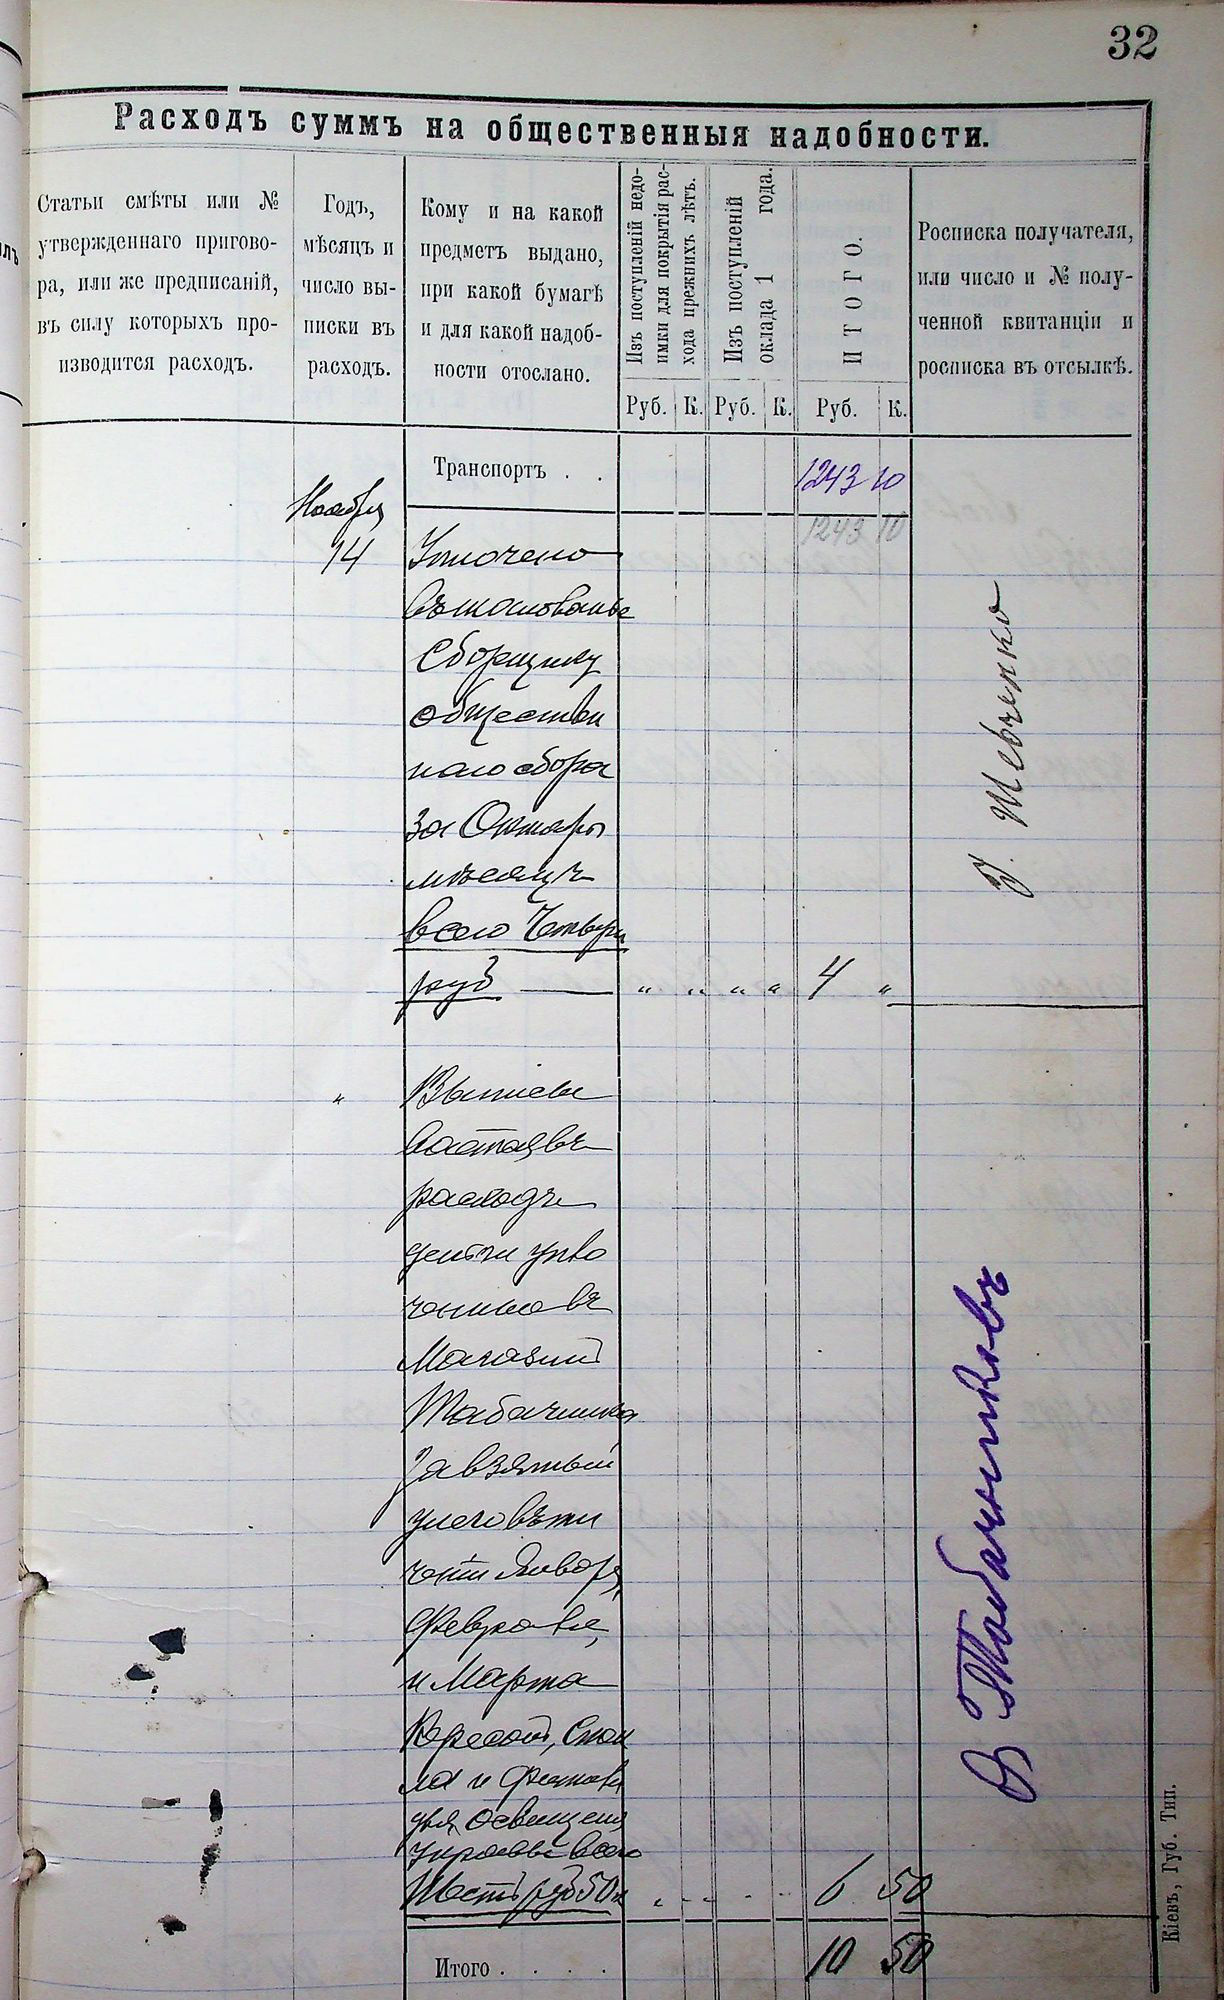 32
Расходъ суммъ на общественныя надобности.
Статьи смѣты или №
утвержденнаго пригово-
ра, или же предписаній,
въ силу которыхъ про-
изводится расходъ.
Годъ,
мѣсяцъ и
число вы-
писки въ
расходъ.
Кому и на какой
предметъ выдано,
при какой бумагѣ
и для какой надоб-
ности отослано.
Изъ поступленій недо-
имки для покрытія рас-
хода прежнихъ лѣтъ.
Изъ поступленій
оклада 1 года.
ИТОГО.
Росписка получателя,
или число и № полу-
ченной квитанціи и
росписка въ отсылкѣ.
Руб. К. Руб. К. Руб. К.
Транспортъ . . 1243 10
1243 10
Ноября
14 Уплочено
жалованье
Сборщику
обществен
наго сбора
за Октябрь
мѣсяцъ
всего Четыри
руб — " " " " 4 "
У. Шевченко
" Выписы
ваются въ
расходъ
деньги упло
ченные въ
Магазинъ
Табачника
за взятый
Январѣ,
Февралѣ,
и Марта
Керосин, Стек
ла и
для освещения
управы всего
Шесть руб 50 к 6 50
В Табачниковъ
Итого . . . . 10 50
Кіевъ, Губ. Тип.